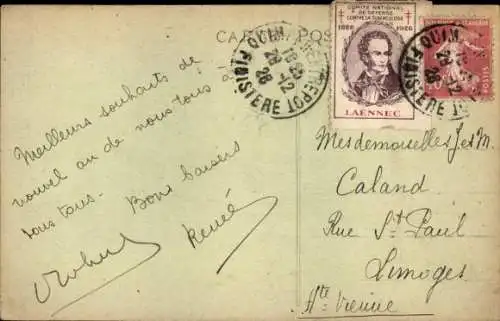 CARTE POS
COMITÉ NATIONAL
DE DÉFENSE
CONTRE LA TUBERCULOSE
1826 1926
LAENNEC
POSTES
QUIM
18 35
28 -12
28
FINISTERE
Meilleurs souhaits de
nouvel an de nous tous à
vous tous.
Bons baisers
Renée
Mesdemoiselles J et M.
Caland
Rue St Paul
Limoges
Hte Vienne